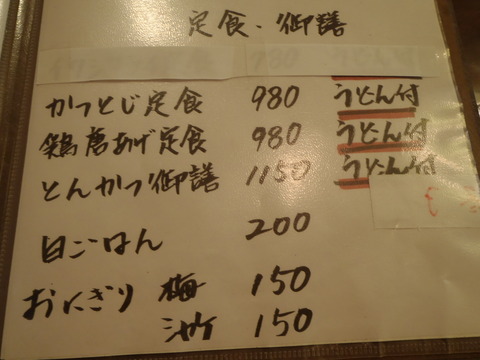 定食・御膳
780
かつとじ定食 980 うどん付
鶏唐あげ定食 980 うどん付
とんかつ御膳 1150 うどん付
白ごはん 200
おにぎり 梅 150
シャケ 150